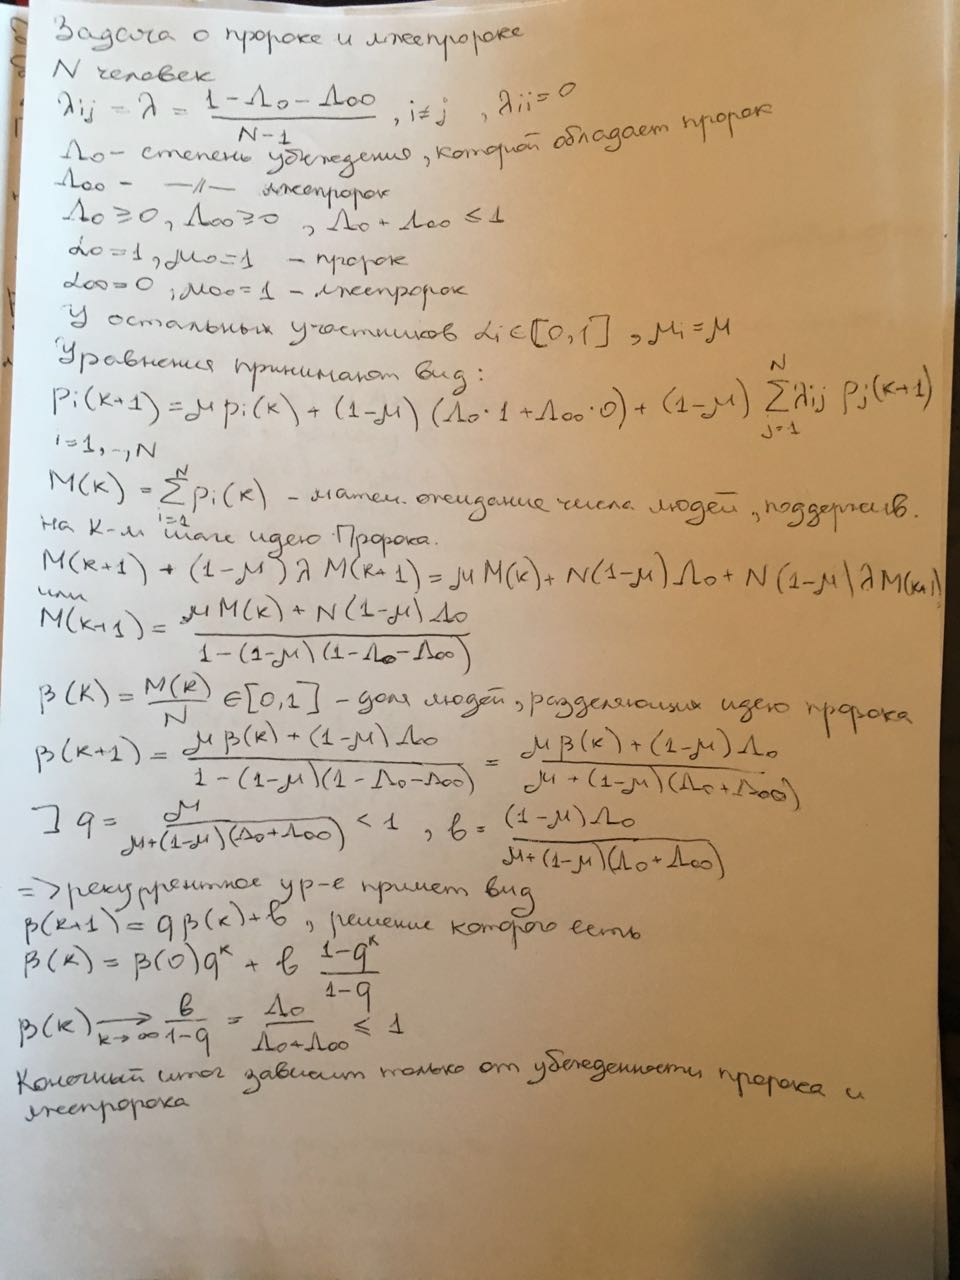 Задача о пророке и лжепророке
N человек
λij = λ = (1 - Λ0 - Λ00)/(N-1), i≠j, λii = 0
Λ0 - степень убеждения, которой обладает пророк
Λ00 - —//— лжепророк
Λ0 ≥ 0, Λ00 ≥ 0, Λ0 + Λ00 ≤ 1
α0 = 1, μ0 = 1 - пророк
α00 = 0, μ00 = 1 - лжепророк
У остальных участников αi ∈ [0,1], μi = μ
Уравнения принимают вид:
pi(k+1) = μ pi(k) + (1-μ) (Λ0·1 + Λ00·0) + (1-μ) Σ_{j=1}^{N} λij pj(k+1)
i = 1,..,N
M(k) = Σ_{i=1}^{N} pi(k) - матем. ожидание числа людей, поддержив.
на k-м шаге идею Пророка.
M(k+1) + (1-μ) λ M(k+1) = μ M(k) + N(1-μ) Λ0 + N(1-μ) λ M(k+1)
или
M(k+1) = (μ M(k) + N(1-μ) Λ0)/(1 - (1-μ)(1 - Λ0 - Λ00))
β(k) = M(k)/N ∈ [0,1] - доля людей, разделяющих идею пророка
β(k+1) = (μ β(k) + (1-μ) Λ0)/(1 - (1-μ)(1 - Λ0 - Λ00)) = (μ β(k) + (1-μ) Λ0)/(μ + (1-μ)(Λ0 + Λ00))
] q = μ/(μ + (1-μ)(Λ0 + Λ00)) < 1, b = (1-μ)Λ0/(μ + (1-μ)(Λ0 + Λ00))
=> рекуррентное ур-е примет вид
β(k+1) = q β(k) + b, решение которого есть
β(k) = β(0) q^k + b (1-q^k)/(1-q)
β(k) →_{k→∞} b/(1-q) = Λ0/(Λ0 + Λ00) ≤ 1
Конечный итог зависит только от убежденности пророка и
лжепророка